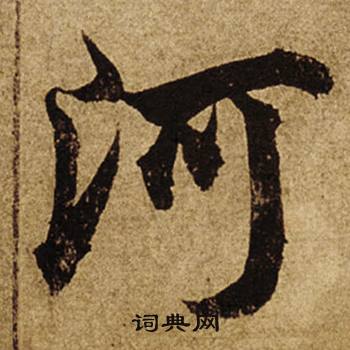 河
词典网